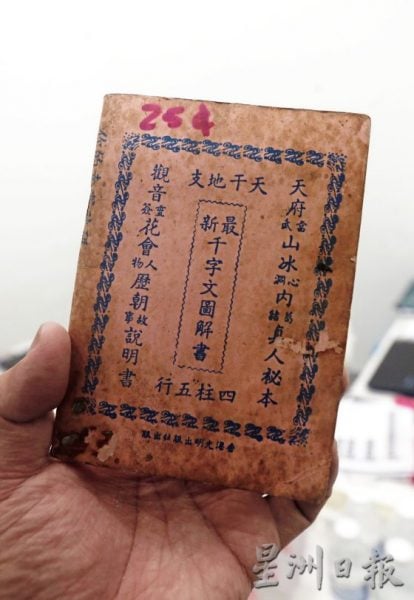 254
天干地支
天府武當山冰心洞內諸葛真人秘本
最新千字文圖解書
觀音靈簽花會人物歷朝故事說明書
四柱五行
香港明出版社出版
星洲日報